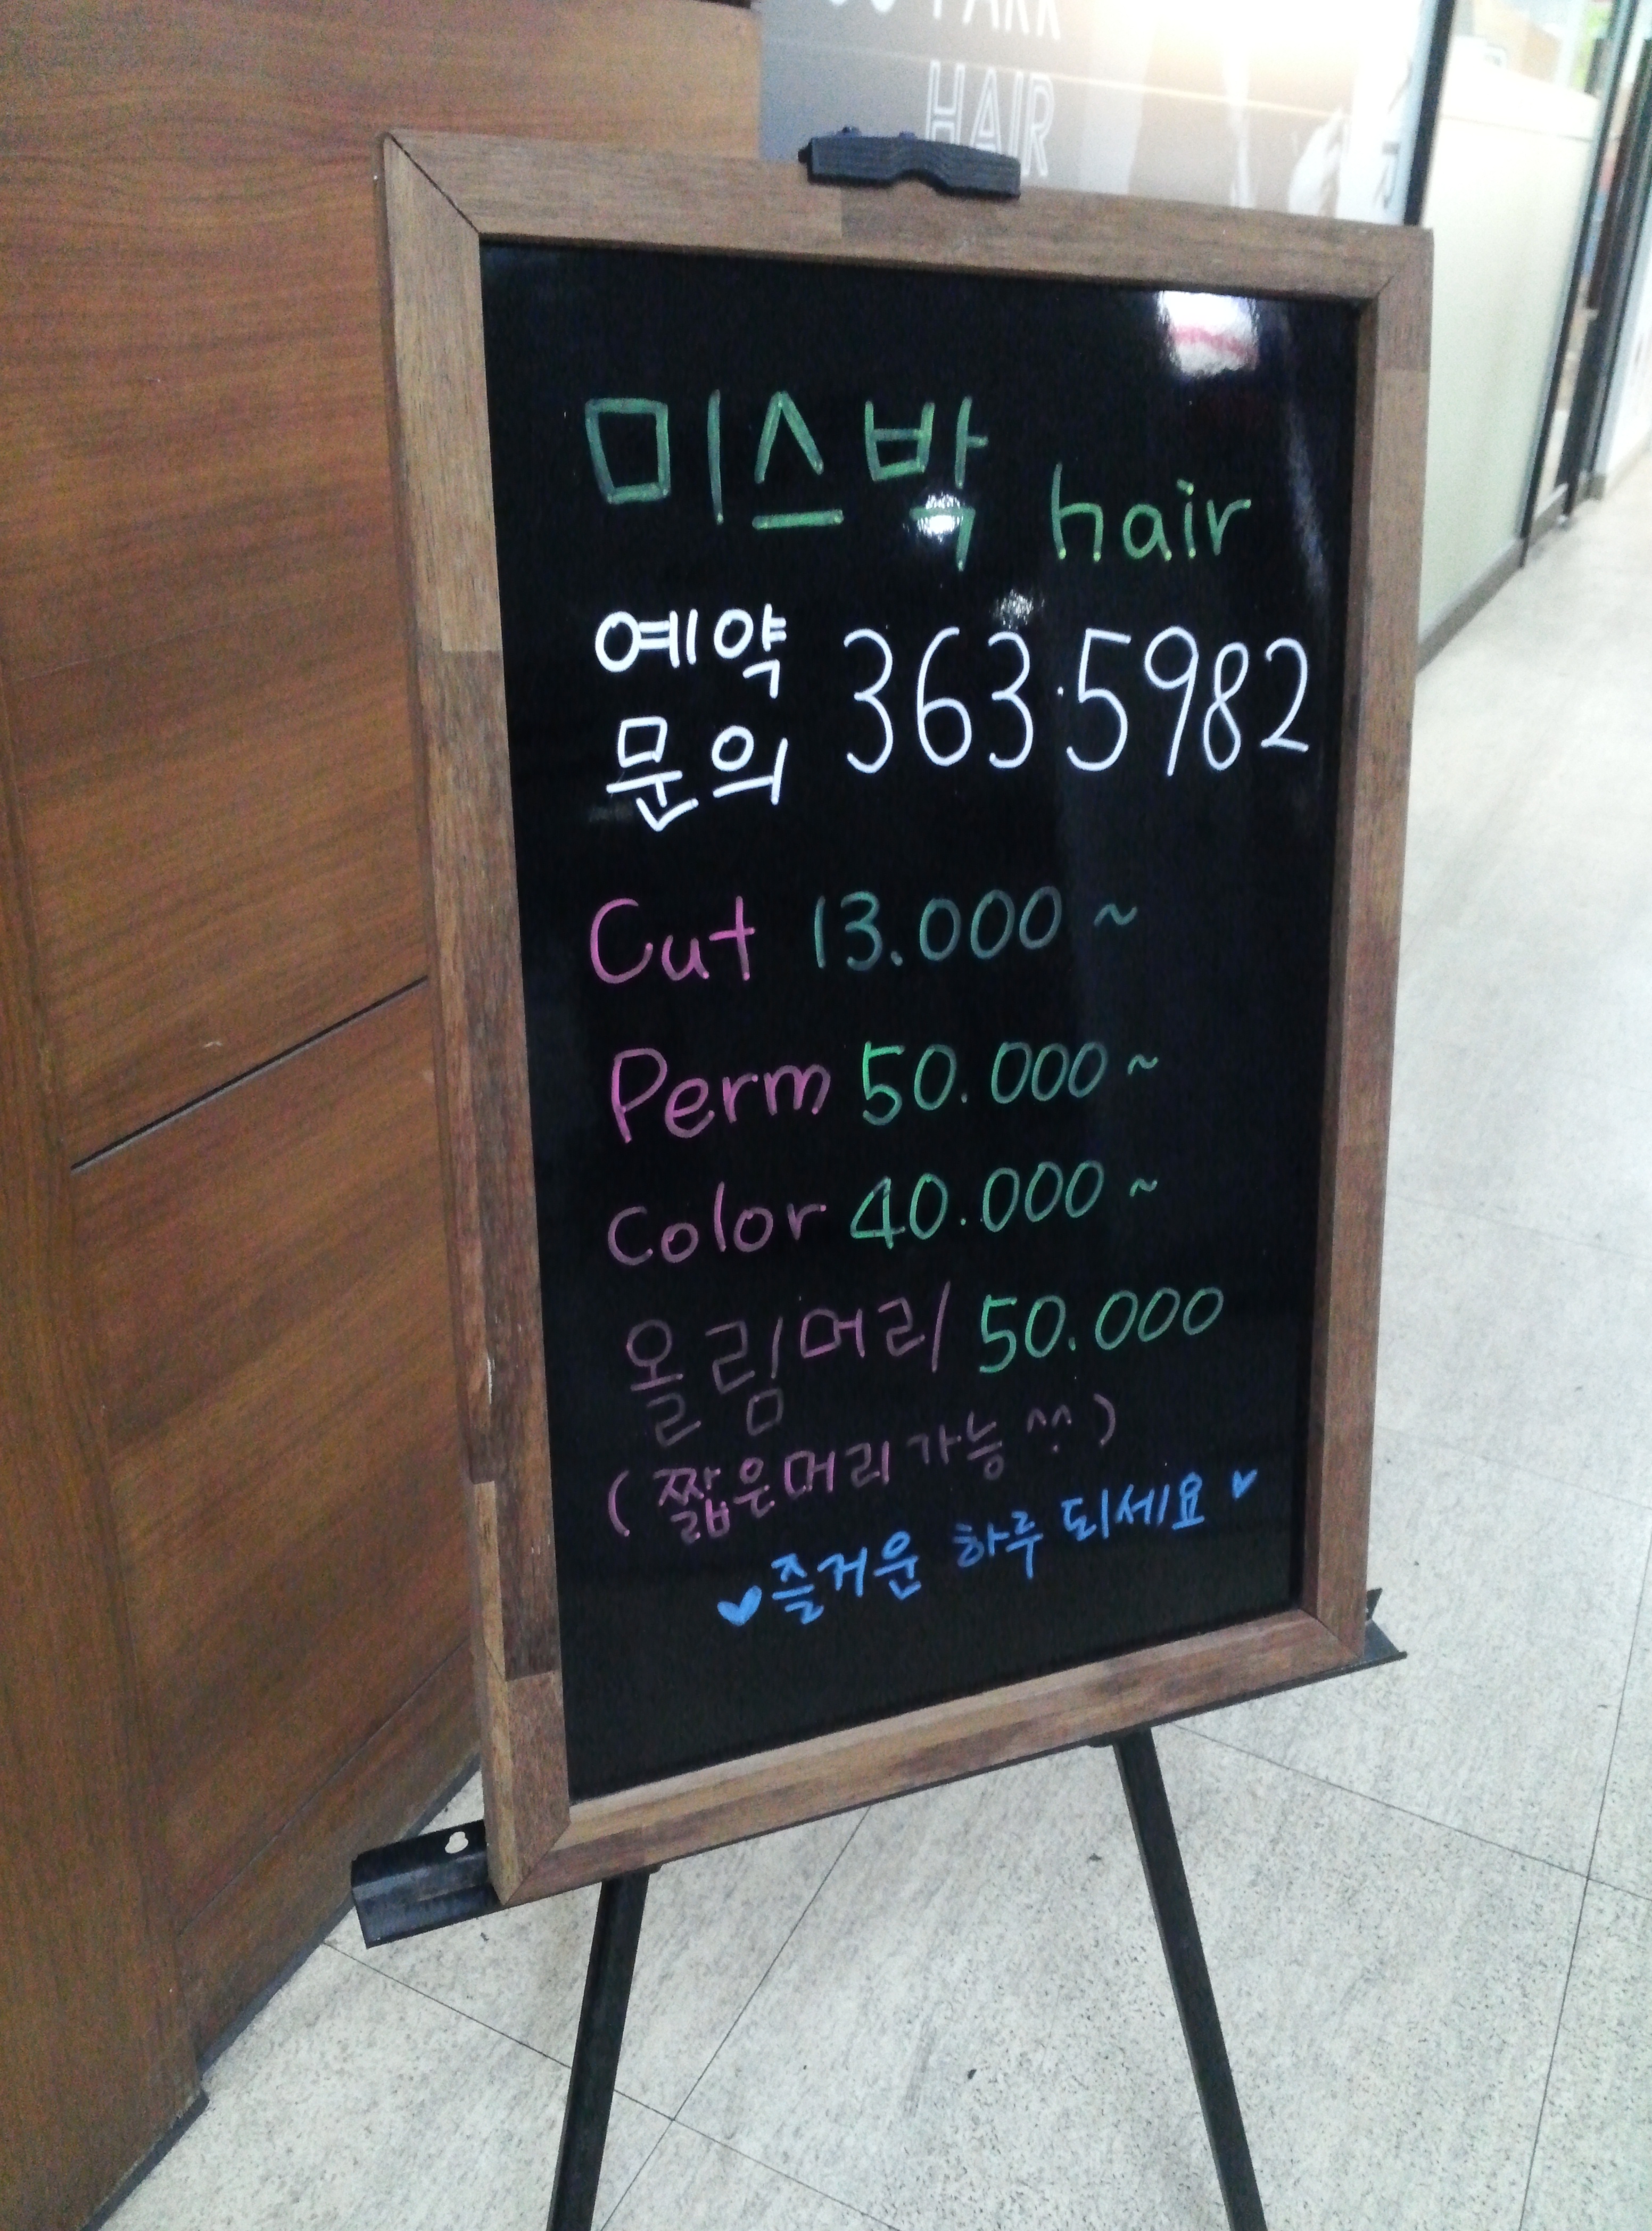 PARK
HAIR
미스박 hair
예약
문의 363.5982
Cut 13.000 ~
Perm 50.000 ~
Color 40.000 ~
올림머리 50.000
( 짧은머리 가능 ^^ )
♥즐거운 하루 되세요♥